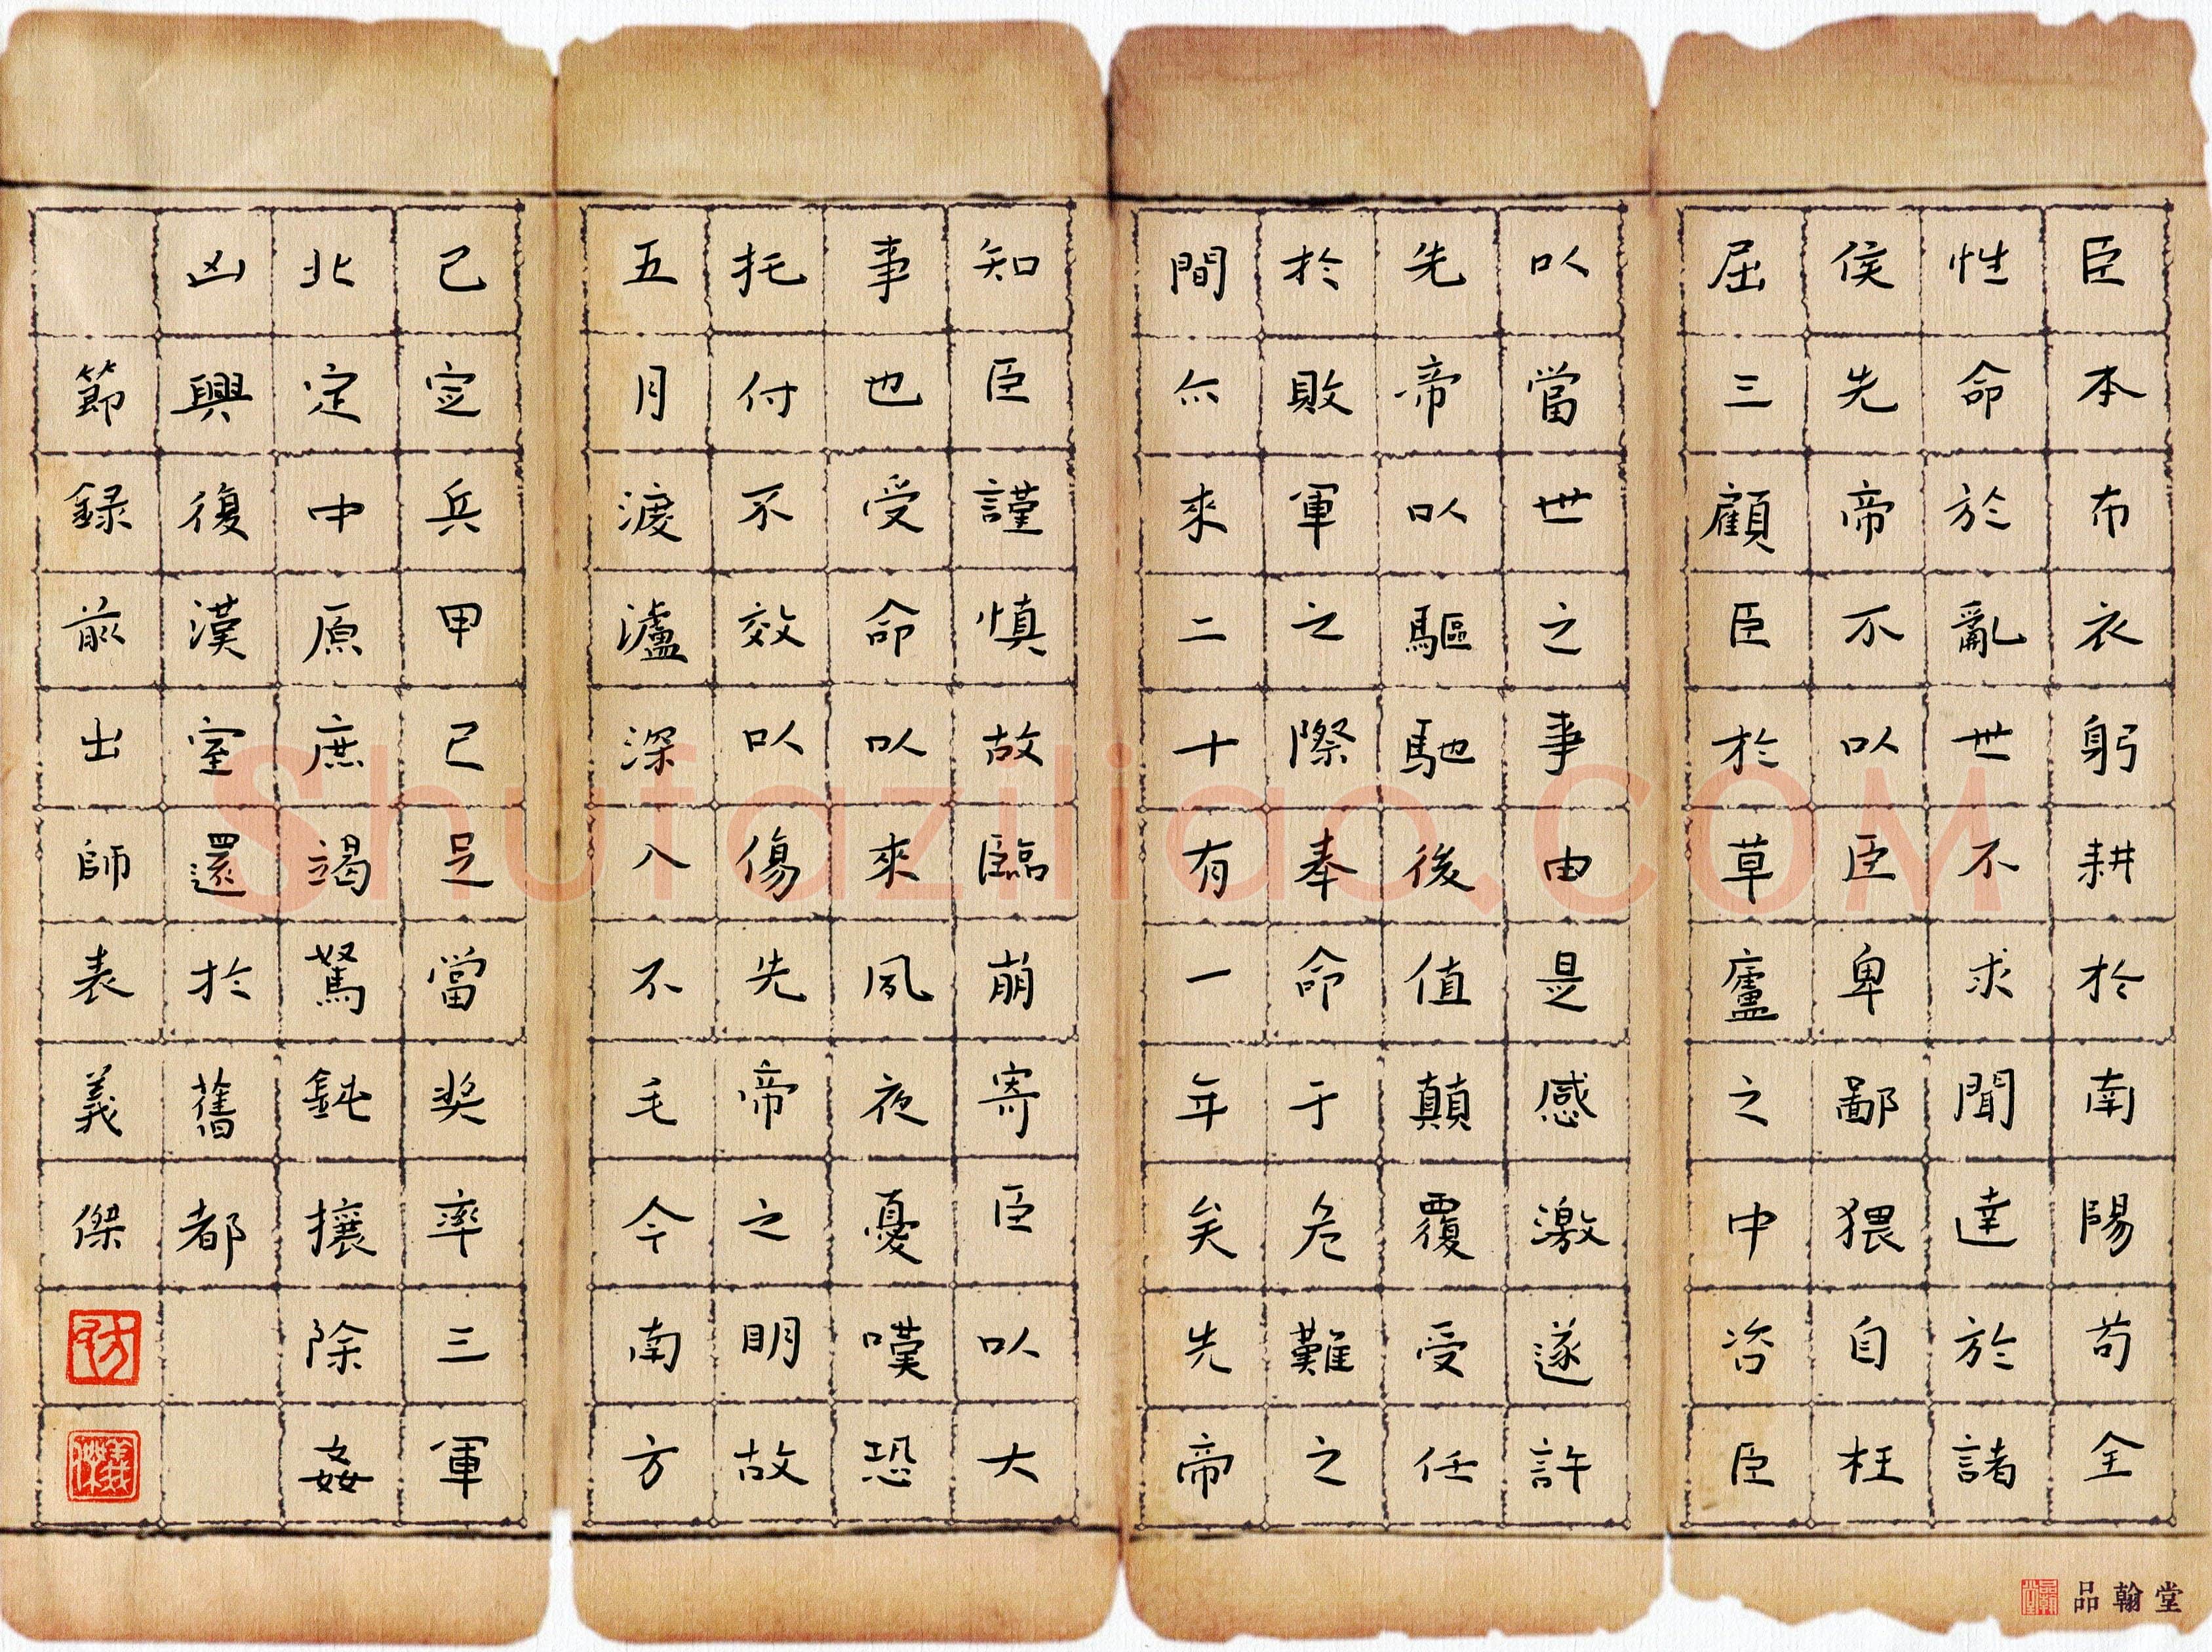 臣本布衣躬耕於南陽苟全
性命於亂世不求聞達於諸
侯先帝不以臣卑鄙猥自枉
屈三顧臣於草廬之中咨臣
以當世之事由是感激遂許
先帝以驅馳後值顛覆受任
於敗軍之際奉命于危難之
間尒來二十有一年矣先帝
知臣謹慎故臨崩寄臣以大
事也受命以來夙夜憂嘆恐
托付不效以傷先帝之明故
五月渡瀘深入不毛今南方
已定兵甲已足當奖率三軍
北定中原庶竭駑鈍攘除姦
凶興復漢室還於舊都
節録前出師表義傑
品翰堂
Shufaziliao.COM